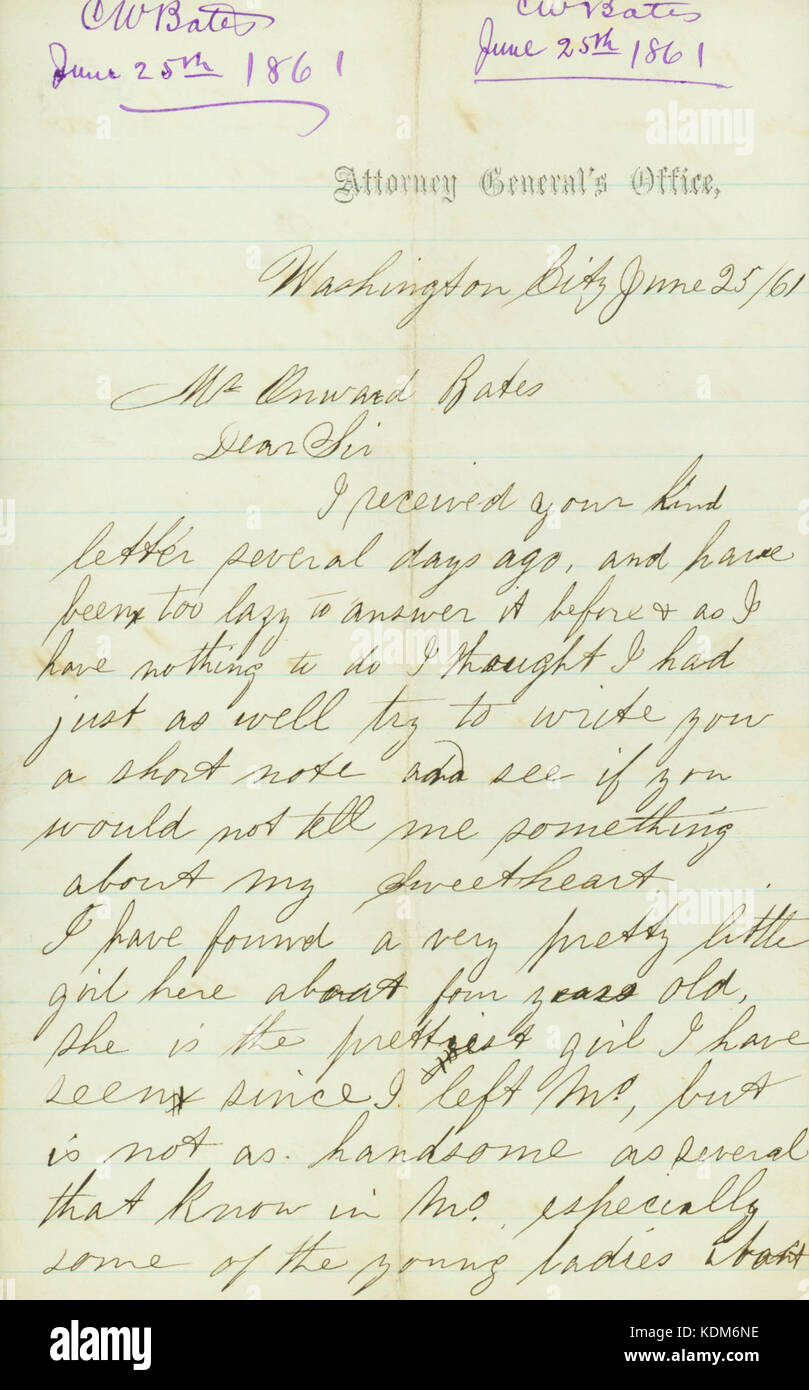 CW Bates
June 25th 1861
CW Bates
June 25th 1861
Attorney General's Office,
Washington City June 25/61
Mr Onward Bates
Dear Sir
I received your kind
letter several days ago, and have
been too lazy to answer it before & as I
have nothing to do I thought I had
just as well try to write you
a short note and see if you
would not tell me something
about my sweetheart.
I have found a very pretty little
girl here about four years old,
she is the prettiest girl I have
seen since I left Mo, but
is not as handsome as several
that know in Mo. especially
some of the young ladies about
alamy
alamy
alamy
alamy
Image ID: KDM6NE
www.alamy.com